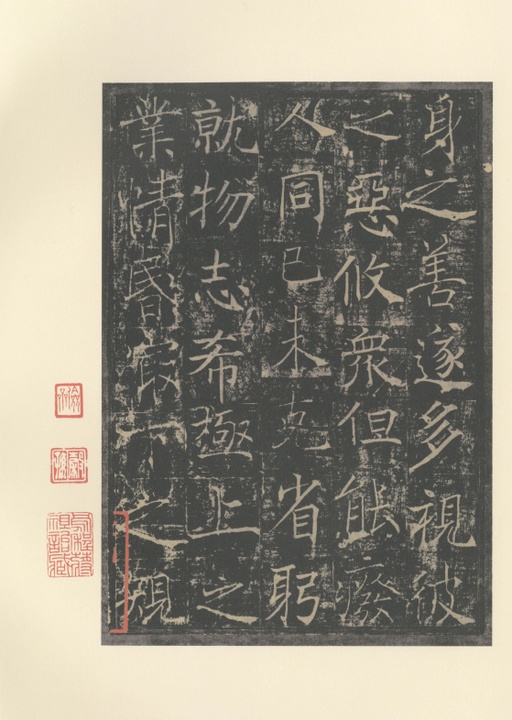 身之善遂多視彼
之惡攸衆但能癈
人同已未克省躬
就物志希極上之
業情昏寂下之䂓